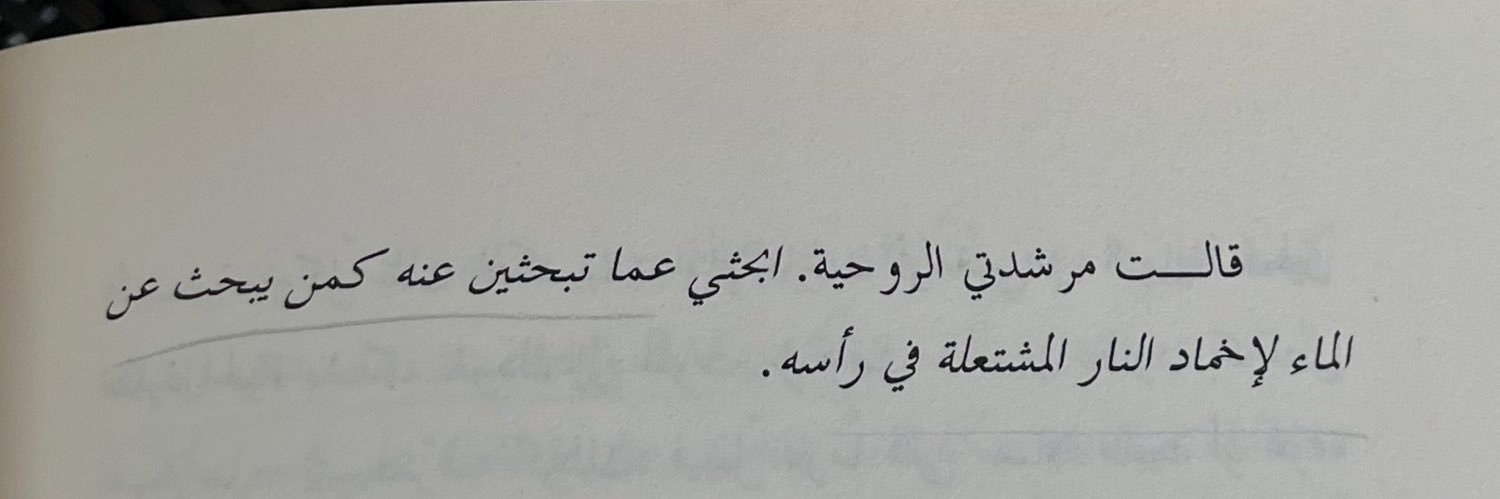 قالت مرشدتي الروحية. ابحثي عما تبحثين عنه كمن يبحث عن
الماء لإخماد النار المشتعلة في رأسه.